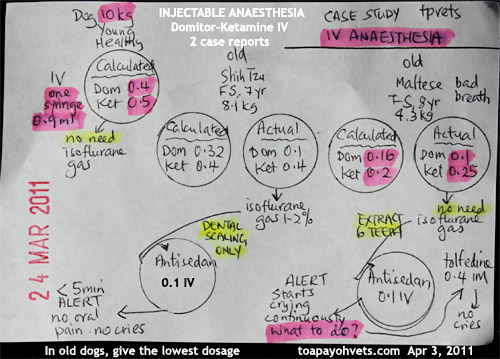 INJECTABLE ANAESTHESIA
Domitor-Ketamine IV
2 case reports
CASE STUDY tpvets
IV ANAESTHESIA
Dog 10 kg
Young
Healthy
IV
one
syringe
0.9 ml
Calculated
Dom 0.4
Ket 0.5
no need
isoflurane
gas
24 MAR 2011
old
Shih Tzu
FS, 7 yr
8.1 kg
Calculated
Dom 0.32
Ket 0.4
Actual
Dom 0.1
Ket 0.4
isoflurane
gas 1-2%
DENTAL
SCALING
ONLY
Antisedan
0.1 IV
< 5min
ALERT
no oral
pain. no cries
old
Maltese bad
FS, 8yr breath
4.3 kg
Calculated
Dom 0.16
Ket 0.2
Actual
Dom 0.1
Ket 0.25
no need
isoflurane
gas
EXTRACT
6 TEETH
Antisedan
0.1 IV
tolfedine
0.4 IM
no
cries
ALERT
starts
crying
continuously
What to do?
In old dogs, give the lowest dosage
toapayohvets.com Apr 3, 2011